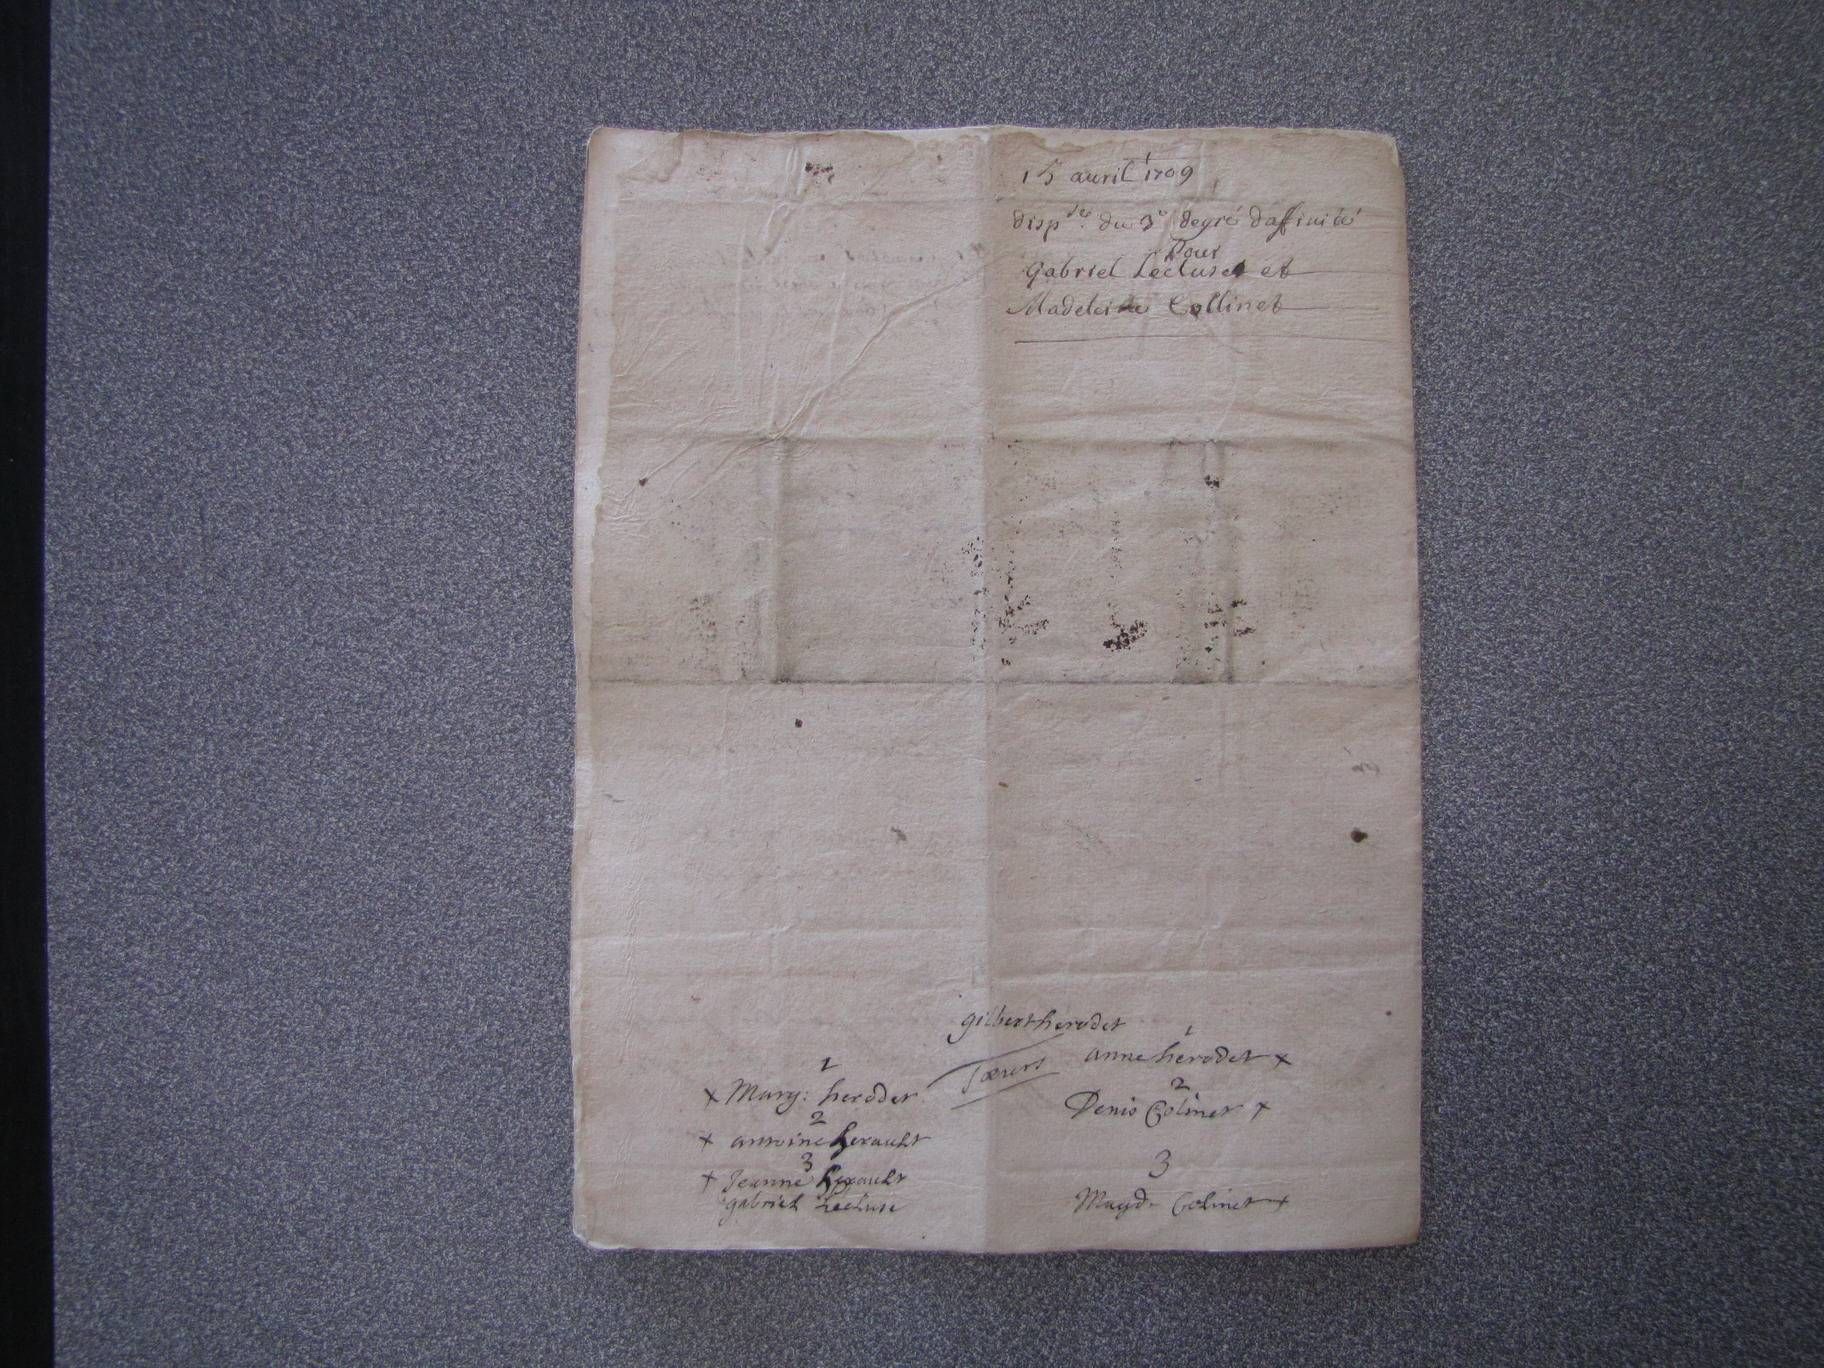 15 avril 1709
dispce. du 3e degré daffinité
Pour
Gabriel Lecluse et
Madeleine Collinet
gilbert herodet
1
anne herodet x
soeurs
1
x Marg: herodet
2
Denis Colinet x
2
x antoine herault
3
3
x Jeanne herault
gabriel Lecluse
Magd. Colinet x